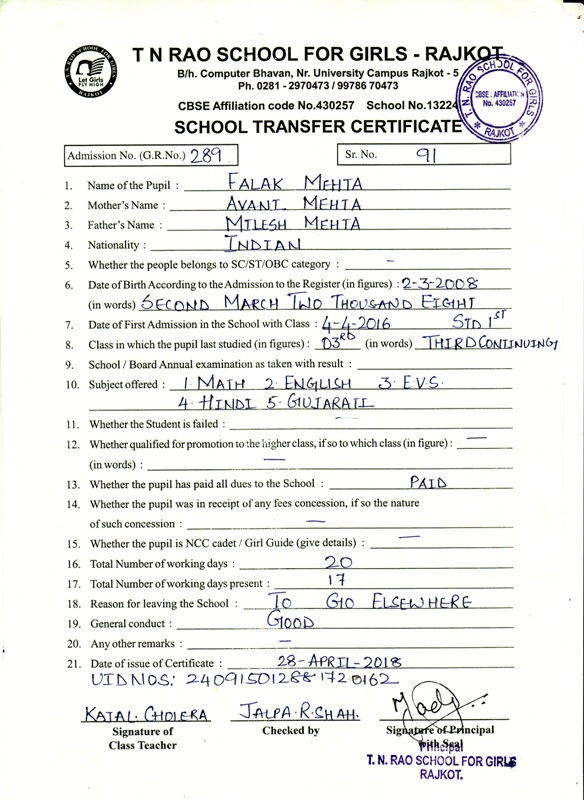 T. N. RAO SCHOOL FOR GIRLS
Let Girls
FLY HIGH
RAJKOT
T N RAO SCHOOL FOR GIRLS - RAJKOT
B/h. Computer Bhavan, Nr. University Campus Rajkot - 5
Ph. 0281 - 2970473 / 99786 70473
CBSE Affiliation code No.430257 School No.13224
T. N. RAO SCHOOL FOR GIRLS
CBSE : AFFILIATION
No. 430257
RAJKOT
SCHOOL TRANSFER CERTIFICATE
Admission No. (G.R.No.) 289 Sr. No. 91
1. Name of the Pupil : FALAK MEHTA
2. Mother's Name : AVANI MEHTA
3. Father's Name : MILESH MEHTA
4. Nationality : INDIAN
5. Whether the people belongs to SC/ST/OBC category : –
6. Date of Birth According to the Admission to the Register (in figures) : 2-3-2008
(in words) SECOND MARCH TWO THOUSAND EIGHT
7. Date of First Admission in the School with Class : 4-4-2016 STD 1ST
8. Class in which the pupil last studied (in figures) : 03RD (in words) THIRD CONTINUING
9. School / Board Annual examination as taken with result :
10. Subject offered : 1. MATH 2. ENGLISH 3. E.V.S.
4. HINDI 5. GUJARATI
11. Whether the Student is failed : –
12. Whether qualified for promotion to the higher class, if so to which class (in figure) : –
(in words) : –
13. Whether the pupil has paid all dues to the School : PAID
14. Whether the pupil was in receipt of any fees concession, if so the nature
of such concession : –
15. Whether the pupil is NCC cadet / Girl Guide (give details) : –
16. Total Number of working days : 20
17. Total Number of working days present : 17
18. Reason for leaving the School : TO GO ELSEWHERE
19. General conduct : GOOD
20. Any other remarks : –
21. Date of issue of Certificate : 28-APRIL-2018
UIDNOS: 240915012881720162
KAJAL CHOLERA JALPA.R.SHAH.
Signature of Checked by Signature of Principal
Class Teacher with Seal
Principal
T. N. RAO SCHOOL FOR GIRLS
RAJKOT.